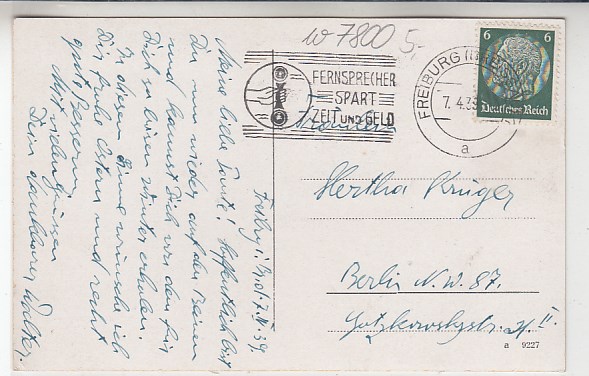 W 7800 5,-
FERNSPRECHER
SPART
ZEIT UND GELD
FREIBURG
7. 4. 39
a
6 6
Deutsches Reich
Freibg. i. Brsg. 7. IV. 39.
Meine liebe Tante! Hoffentlich bist
Du nun wieder auf den Beinen
und kannst Dich von dem
Winter erholen.
In diesem Sinne wünsche ich
Dir frohe Ostern und recht
gute Besserung
Mit vielen Grüssen
Dein dankbarer Walter.
Fräulein
Hertha Krüger
Berlin N.W. 87.
Gotzkowskystr. II.
a 9227